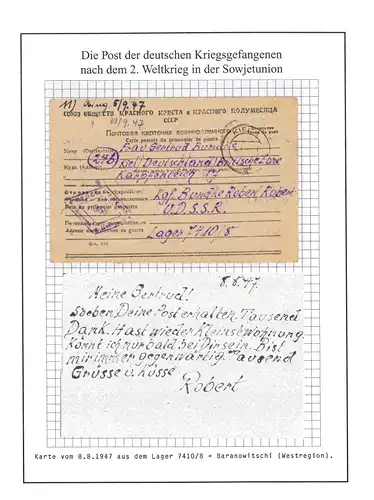 Die Post der deutschen Kriegsgefangenen
nach dem 2. Weltkrieg in der Sowjetunion
11) 5/9.47
СОЮЗ ОБЩЕСТВ КРАСНОГО КРЕСТА и КРАСНОГО ПОЛУМЕСЯЦА
СССР
Почтовая карточка военнопленного
Carte postale du prisonnier de guerre
Кому (Destinataire) Frau Gertrud
Куда (Adresse) Kiel/Deutschland Britische Zone
Отправитель (Expéditeur)
Kgf. Robert
U.D.S.S.R.
Lager 7410/8
8.8.47.
Meine Gertrud!
Soeben Deine Post erhalten. Tausend
Dank. Hast wieder kleins Wohnung
könnt ich nur bald bei Dir sein. Bist
mir immer gegenwärtig. Tausend
Grüsse u. Küsse
Robert
Karte vom 8.8.1947 aus dem Lager 7410/8 = Baranowitschi (Westregion).